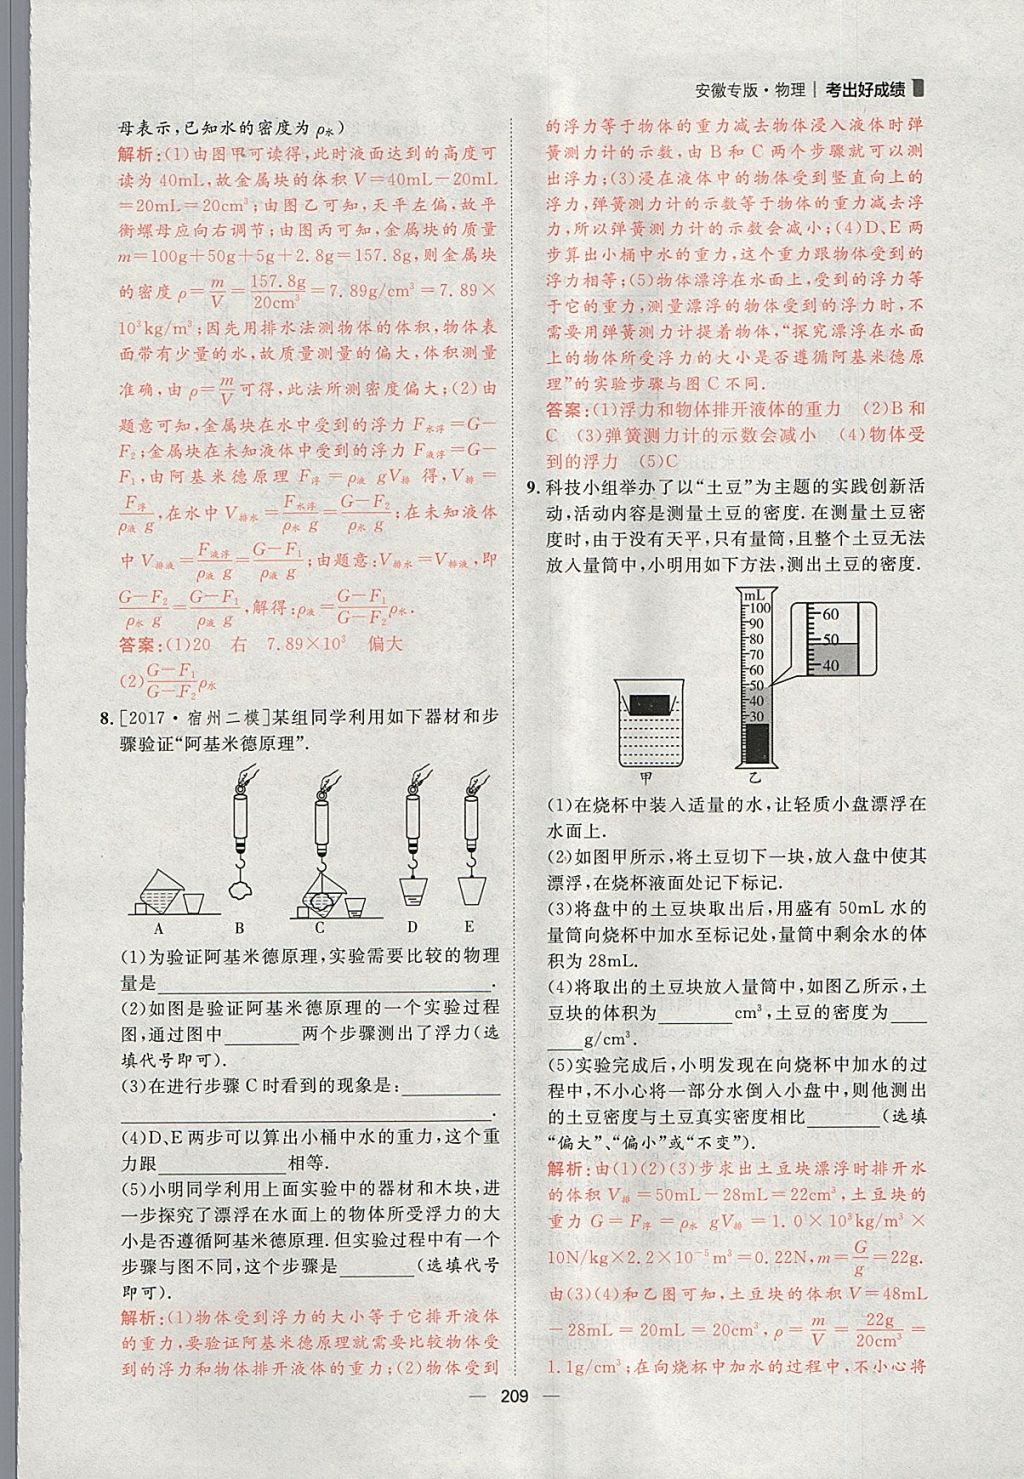 安徽专版·物理|考出好成绩
母表示,已知水的密度为ρ水)
解析:(1)由图甲可读得,此时液面达到的高度可
读为40mL,故金属块的体积V=40mL-20mL
=20mL=20cm³;由图乙可知,天平左偏,故平
衡螺母应向右调节;由图丙可知,金属块的质量
m=100g+50g+5g+2.8g=157.8g,则金属块
的密度ρ=m/V=157.8g/20cm³=7.89g/cm³=7.89×
10³kg/m³;因先用排水法测物体的体积,物体表
面带有少量的水,故质量测量的偏大,体积测量
准确,由ρ=m/V可得,此法所测密度偏大;(2)由
题意可知,金属块在水中受到的浮力F水浮=G-
F₂;金属块在未知液体中受到的浮力F液浮=G-
F₁,由阿基米德原理F浮=ρ液gV排得,V排=
F浮/ρ液g,在水中V排水=F水浮/ρ水g=G-F₂/ρ水g;在未知液体
中V排液=F液浮/ρ液g=G-F₁/ρ液g;由题意:V排水=V排液,即
G-F₂/ρ水g=G-F₁/ρ液g,解得:ρ液=G-F₁/G-F₂ρ水.
答案:(1)20 右 7.89×10³ 偏大
(2)G-F₁/G-F₂ρ水
8.[2017·宿州二模]某组同学利用如下器材和步
骤验证“阿基米德原理”.
A B C D E
(1)为验证阿基米德原理,实验需要比较的物理
量是________.
(2)如图是验证阿基米德原理的一个实验过程
图,通过图中________两个步骤测出了浮力(选
填代号即可).
(3)在进行步骤C时看到的现象是:________
________.
(4)D、E两步可以算出小桶中水的重力,这个重
力跟________相等.
(5)小明同学利用上面实验中的器材和木块,进
一步探究了漂浮在水面上的物体所受浮力的大
小是否遵循阿基米德原理.但实验过程中有一个
步骤与图不同,这个步骤是________(选填代号
即可).
解析:(1)物体受到浮力的大小等于它排开液体
的重力,要验证阿基米德原理就需要比较物体受
到的浮力和物体排开液体的重力;(2)物体受到
的浮力等于物体的重力减去物体浸入液体时弹
簧测力计的示数,由B和C两个步骤就可以测
出浮力;(3)浸在液体中的物体受到竖直向上的
浮力,弹簧测力计的示数等于物体的重力减去浮
力,所以弹簧测力计的示数会减小;(4)D、E两
步算出小桶中水的重力,这个重力跟物体受到的
浮力相等;(5)物体漂浮在水面上,受到的浮力等
于它的重力,测量漂浮的物体受到的浮力时,不
需要用弹簧测力计提着物体,“探究漂浮在水面
上的物体所受浮力的大小是否遵循阿基米德原
理”的实验步骤与图C不同.
答案:(1)浮力和物体排开液体的重力 (2)B和
C (3)弹簧测力计的示数会减小 (4)物体受
到的浮力 (5)C
9.科技小组举办了以“土豆”为主题的实践创新活
动,活动内容是测量土豆的密度.在测量土豆密
度时,由于没有天平,只有量筒,且整个土豆无法
放入量筒中,小明用如下方法,测出土豆的密度.
mL
100
90
80
70
60
50
40
30
60
50
40
甲 乙
(1)在烧杯中装入适量的水,让轻质小盘漂浮在
水面上.
(2)如图甲所示,将土豆切下一块,放入盘中使其
漂浮,在烧杯液面处记下标记.
(3)将盘中的土豆块取出后,用盛有50mL水的
量筒向烧杯中加水至标记处,量筒中剩余水的体
积为28mL.
(4)将取出的土豆块放入量筒中,如图乙所示,土
豆块的体积为________cm³,土豆的密度为____
____g/cm³.
(5)实验完成后,小明发现在向烧杯中加水的过
程中,不小心将一部分水倒入小盘中,则他测出
的土豆密度与土豆真实密度相比________(选填
“偏大”、“偏小”或“不变”).
解析:由(1)(2)(3)步求出土豆块漂浮时排开水
的体积V排=50mL-28mL=22cm³,土豆块的
重力G=F浮=ρ水gV排=1.0×10³kg/m³×
10N/kg×2.2×10⁻⁵m³=0.22N,m=G/g=22g.
由(3)(4)和乙图可知,土豆块的体积V=48mL
-28mL=20mL=20cm³,ρ=m/V=22g/20cm³=
1.1g/cm³;在向烧杯中加水的过程中,不小心将
— 209 —